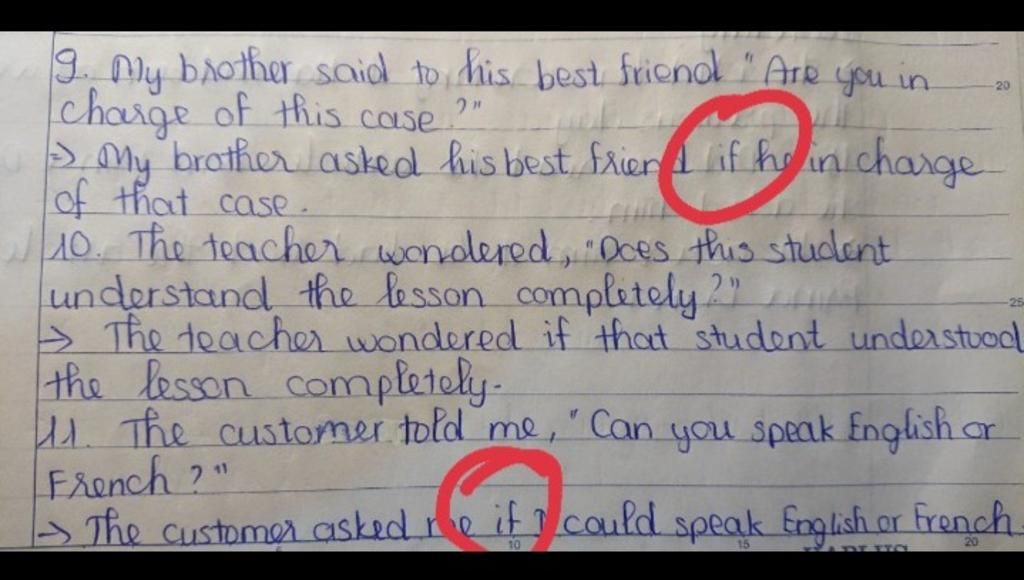 9. My brother said to his best friend "Are you in
20
charge of this case?"
=> My brother asked his best friend if he in charge
of that case.
10. The teacher wondered, "Does this student
understand the lesson completely?"
25
-> The teacher wondered if that student understood
the lesson completely.
11. The customer told me, "Can you speak English or
French?"
-> The customer asked me if I could speak English or French.
10 15 20